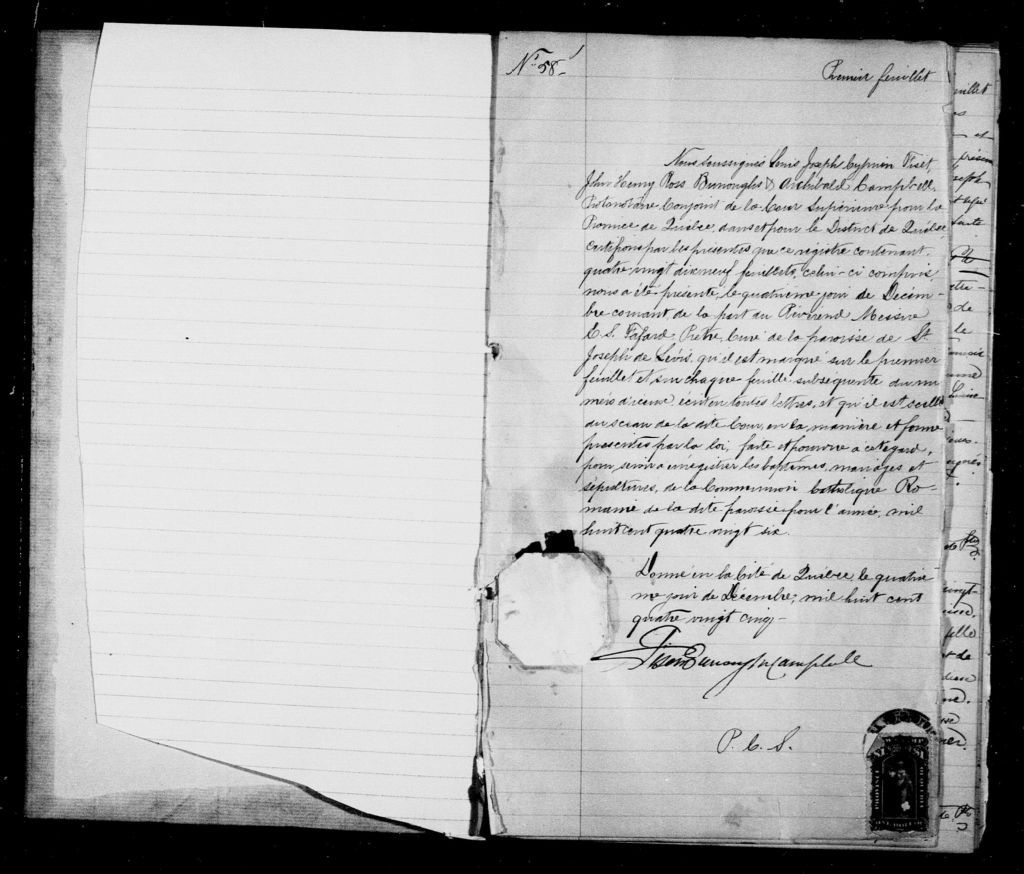 Nº 58
Premier feuillet
Nous soussignés Louis Joseph Cyprien Fiset,
John Henry Ross Burroughs & Archibald Campbell,
Protonotaire Conjoint de la Cour Supérieure pour la
Province de Québec, dans et pour le District de Québec
Certifions par les présentes que ce registre contenant
quatre vingt dix neuf feuillets, celui-ci compris
nous a été présenté, le quatrième jour de Décem-
bre courant de la part du Révérend Messire
E. S. Fafard Prêtre, Curé de la paroisse de St
Joseph de Lévis, qu'il est marqué sur le premier
feuillet et sur chaque feuille subséquente du nu
méro d'icelui écrit en toutes lettres, et qu'il est scellé
du sceau de la dite Cour, en la manière et forme
prescrites par la loi, faite et pourvue à cet égard,
pour servir à enregistrer les baptêmes, mariages et
sépultures, de la Communion Catholique Ro-
maine de la dite paroisse pour l'année, mil
huit cent quatre vingt six.
Donné en la Cité de Québec le quatriè
me jour de Décembre, mil huit cent
quatre vingt cinq -
Fiset Burroughs Campbell
P. C. S.
PROVINCE
ONE DOLLAR